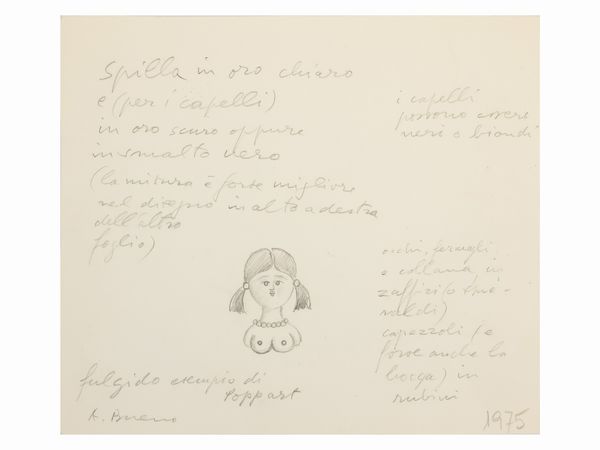 Spilla in oro chiaro
e (per i capelli)
in oro scuro oppure
in smalto nero
(la misura è forse migliore
nel disegno in alto a destra
dell'altro
foglio)
i capelli
possono essere
neri o biondi
occhi, fermagli
e collana, in
zaffiri (o sme-
raldi)
capezzoli (e
forse anche la
bocca) in
rubini
fulgido esempio di
Poppart
A. Bueno
1975